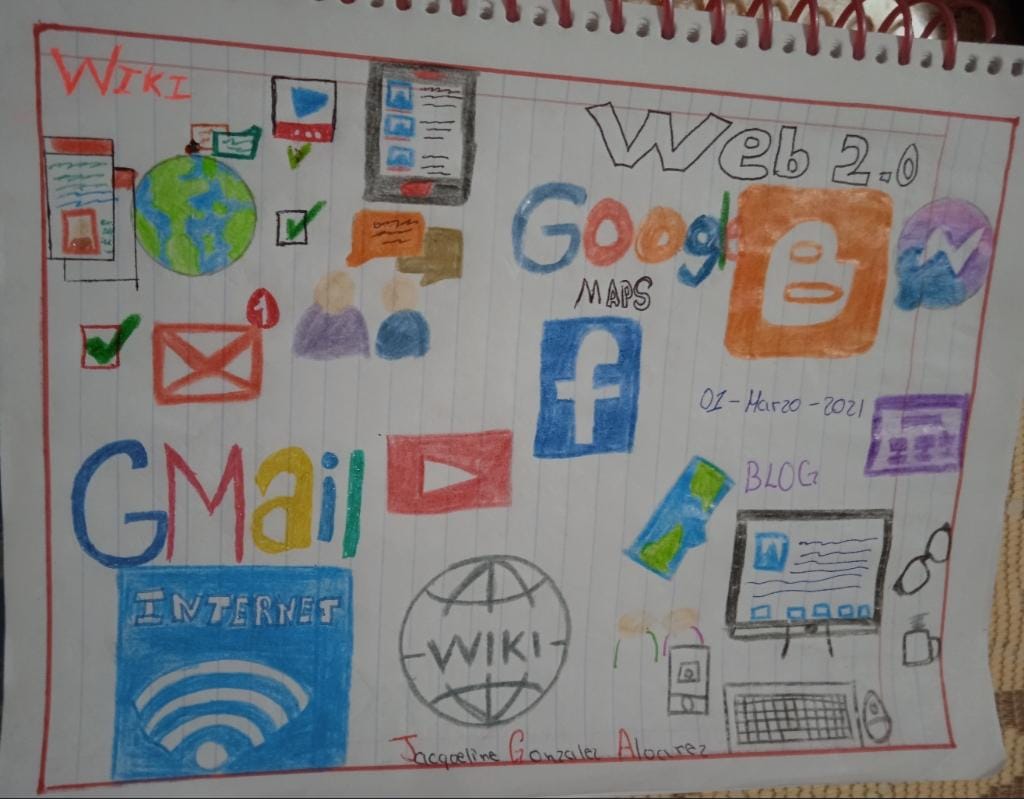 WIKI
Web 2.0
Google
MAPS
1
f
01-Marzo-2021
BLOG
GMail
INTERNET
WIKI
Jacqueline Gonzalez Alvarez